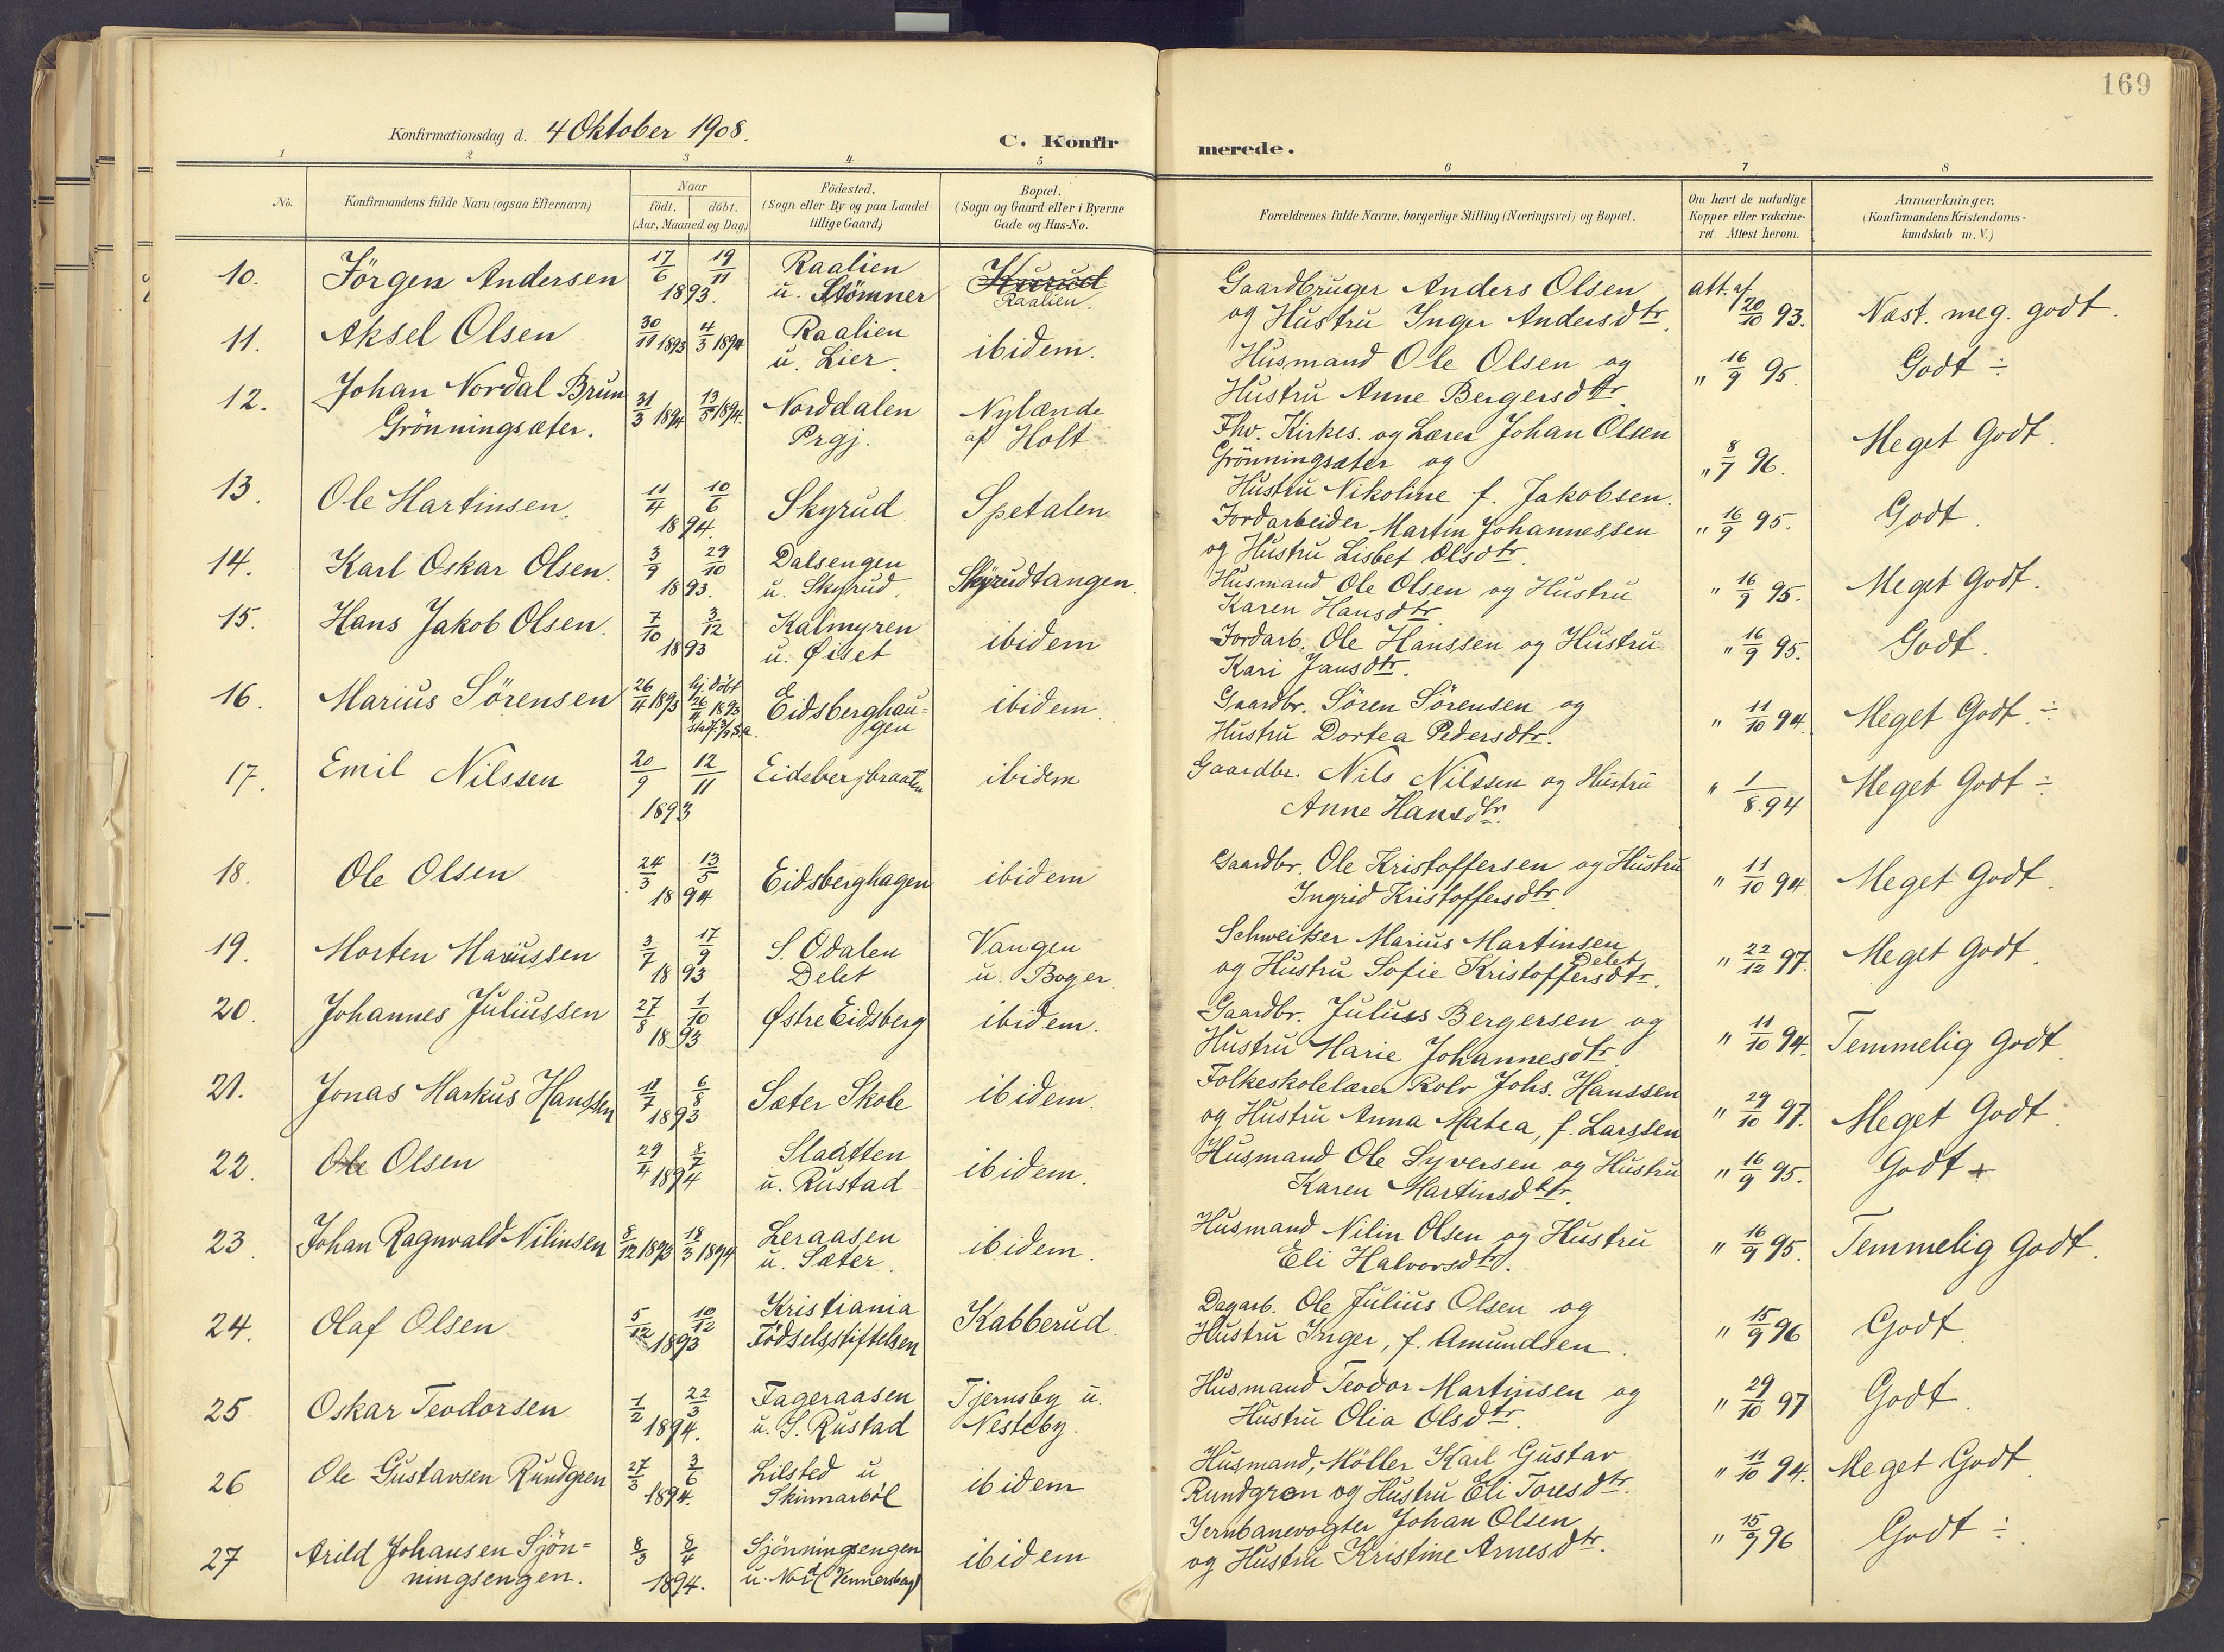 169
Konfirmationsdag d. 4 Oktober 1908.
C. Konfirmerede.
1 2 3 4 5 6 7 8
No.
Konfirmandens fulde Navn (ogsaa Efternavn)
Naar
födt. döbt.
(Aar, Maaned og Dag)
Födested.
(Sogn eller By og paa Landet
tillige Gaard)
Bopæl.
(Sogn og Gaard eller i Byerne
Gade og Hus-No.
Forældrenes fulde Navne, borgerlige Stilling (Næringsvei) og Bopæl.
Om havt de naturlige
Kopper eller vakcine-
ret. Attest herom.
Anmærkninger,
(Konfirmandens Kristendoms-
kundskab m. V.)
10. Jörgen Andersen 17/6 19/11 1893. Raalien
u. Stömner
Raalien.
Gaardbruger Anders Olsen
og Hustru Inger Andersdtr.
att. af 20/10 93. Næst. meg. godt.
11. Aksel Olsen 30/11 1893 4/3 1894 Raalien
u. Lier.
ibidem.
Husmand Ole Olsen og
Hustru Anne Bergersdtr.
" 16/9 95. Godt ÷
12. Johan Nordal Brun
Grönningsæter.
31/3 1894 13/5 1894. Norddalen
Prgj.
Nylænde
af Holt
Fhv. Kirkes. og Lærer Johan Olsen
Grönningsæter og
Hustru Nikoline f. Jakobsen.
" 8/7 96. Meget Godt.
13. Ole Martinsen. 11/4 10/6 1894. Skyrud Spetalen
Jordarbeider Martin Johannessen
og Hustru Lisbet Olsdtr.
" 16/9 95. Godt.
14. Karl Oskar Olsen. 3/9 29/10 1893. Dalsengen
u. Skyrud.
Skyrudtangen.
Husmand Ole Olsen og Hustru
Karen Hansdtr.
" 16/9 95. Meget Godt.
15. Hans Jakob Olsen. 7/10 3/12 1893 Kalmyren
u. Øiset
ibidem
Jordarb. Ole Hanssen og Hustru
Kari Jansdtr.
" 16/9 95. Godt.
16. Marius Sörensen 26/4 1893 hj. döbt
26/4 1893
Eidsberghau=
gen
ibidem.
Gaardbr. Sören Sörensen og
Hustru Dortea Pedersdtr.
" 11/10 94. Meget Godt. ÷
17. Emil Nilssen 20/9 12/11 1893 Eidsbergbraaten ibidem
Gaardbr. Nils Nilssen og Hustru
Anne Hansdtr.
" 1/8 94 Meget Godt ÷
18. Ole Olsen 24/3 13/5 1894 Eidsberghagen ibidem
Gaardbr. Ole Kristoffersen og Hustru
Ingrid Kristoffersdtr.
" 11/10 94. Meget Godt.
19. Morten Mariussen 3/7 17/9 1893 S. Odalen
Delet
Vangen
u. Boger.
Schweitser Marius Martinsen
Delet
og Hustru Sofie Kristoffersdtr.
" 22/12 97. Meget Godt.
20. Johannes Juliussen 27/8 1/10 1893 Østre Eidsberg ibidem.
Gaardbr. Julius Bergersen og
Hustru Marie Johannesdtr.
" 11/10 94. Temmelig Godt.
21. Jonas Markus Hanssen 11/7 6/8 1893 Sæter Skole ibidem.
Folkeskolelærer Rolv Johs. Hanssen
og Hustru Anna Matea, f. Larssen
" 29/10 97. Meget Godt.
22. Ole Olsen 29/4 8/7 1894 Slaatten
u. Rustad
ibidem.
Husmand Ole Syversen og Hustru
Karen Martinsdtr.
" 16/9 95. Godt +
23. Johan Ragnvald Nilinsen 8/12 1893 18/3 1894 Leraasen
u. Sæter.
ibidem.
Husmand Nilin Olsen og Hustru
Eli Halvorsdtr.
" 16/9 95. Temmelig Godt.
24. Olaf Olsen 5/12 10/12 1893 Kristiania
Födselsstiftelsen
Kabberud.
Dagarb. Ole Julius Olsen og
Hustru Inger, f. Amundsen.
" 15/9 96 Godt
25 Oskar Teodorsen 1/2 22/3 1894. Fageraasen
u. S. Rustad
Tjernsby u.
Nesteby.
Husmand Teodor Martinsen og
Hustru Olia Olsdtr.
" 29/10 97 Godt.
26 Ole Gustavsen Rundgren 27/3 3/6 1894. Lilsted u
Skinnarböl
ibidem
Husmand, Möller Karl Gustav
Rundgren og Hustru Eli Toresdtr.
" 11/10 94. Meget Godt.
27 Arild Johansen Sjön=
ningsengen.
8/3 8/4 1894. Sjönningsengen
u. Nord (Vennersberg)
ibidem
Jernbanevogter Johan Olsen
og Hustru Kristine Arnesdtr.
" 15/9 96 Godt ÷